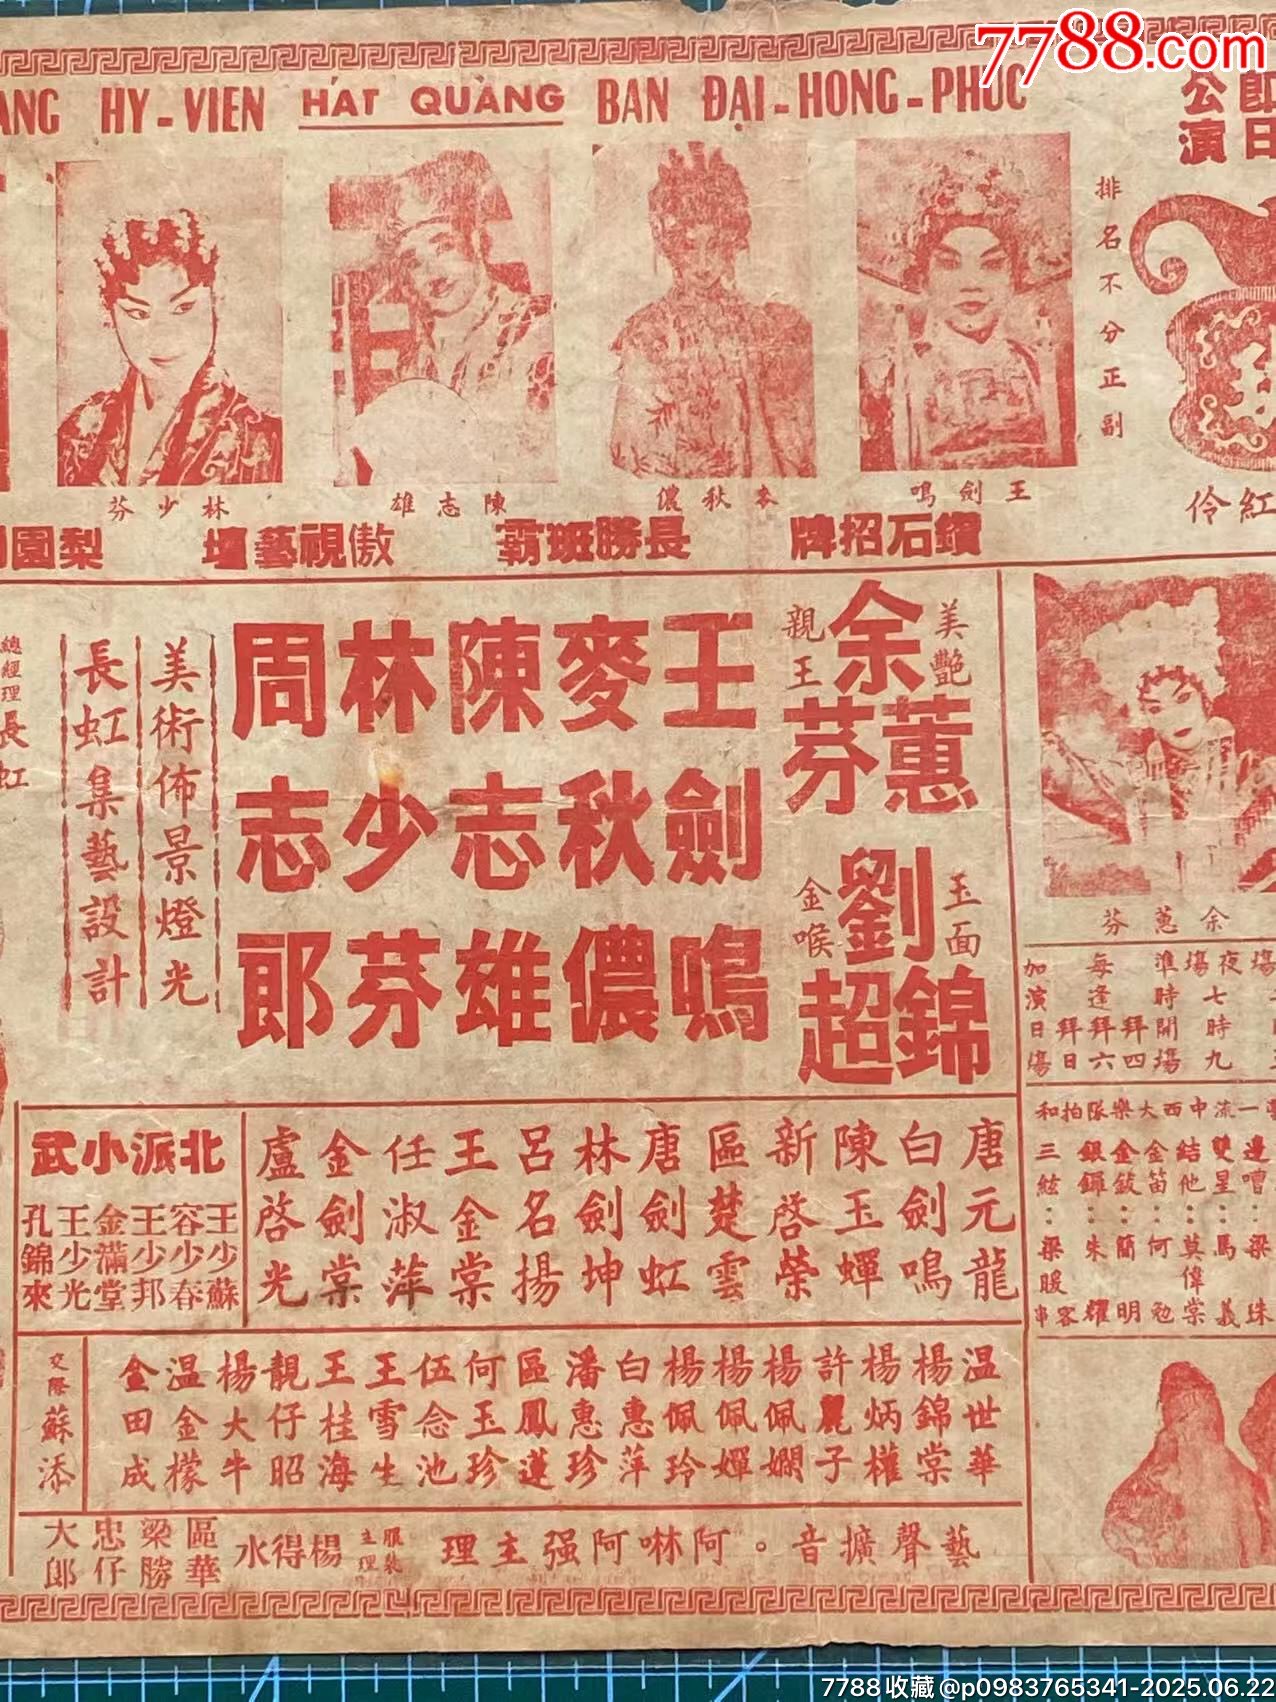 7788.com
ANG HY-VIEN HÁT QUẢNG BAN ĐẠI-HONG-PHÚC
公演
即日
排名不分正副
王劍鳴
麥秋儂
陳志雄
林少芬
紅伶
鑽石招牌
長勝班霸
傲視藝壇
梨園
美艷親王
余蕙芬
玉面金喉
劉錦超
王劍鳴
麥秋儂
陳志雄
林少芬
周志郎
美術佈景燈光
長虹集藝設計
總經理長虹
余蕙芬
夜場七時九
準時開場
每逢拜四拜六拜日
加演日場
一流中西大樂隊拍和
邊嘈：梁珠
雙星：馬義
結他：莫偉棠
金笛：何勉
金鈸：簡明
銀鑼：朱耀
三絃：梁暖
容串
唐元龍
白劍鳴
陳玉蟬
新啓榮
區楚雲
唐劍虹
林劍坤
呂名揚
王金棠
任淑萍
金劍棠
盧啓光
北派小武
王少蘇
容少春
王少邦
金滿堂
王少光
孔錦來
温世華
楊錦棠
楊炳權
許麗子
楊佩嫻
楊佩嬋
楊佩玲
白惠萍
潘惠珍
區鳳蓮
何玉珍
伍念池
王雪生
王桂海
靚仔昭
楊大牛
温金檬
金田成
交際蘇添
藝聲擴音。阿啉阿强主理
服裝主理
楊得水
區華
梁勝
忠仔
大郎
7788收藏@p0983765341-2025.06.22